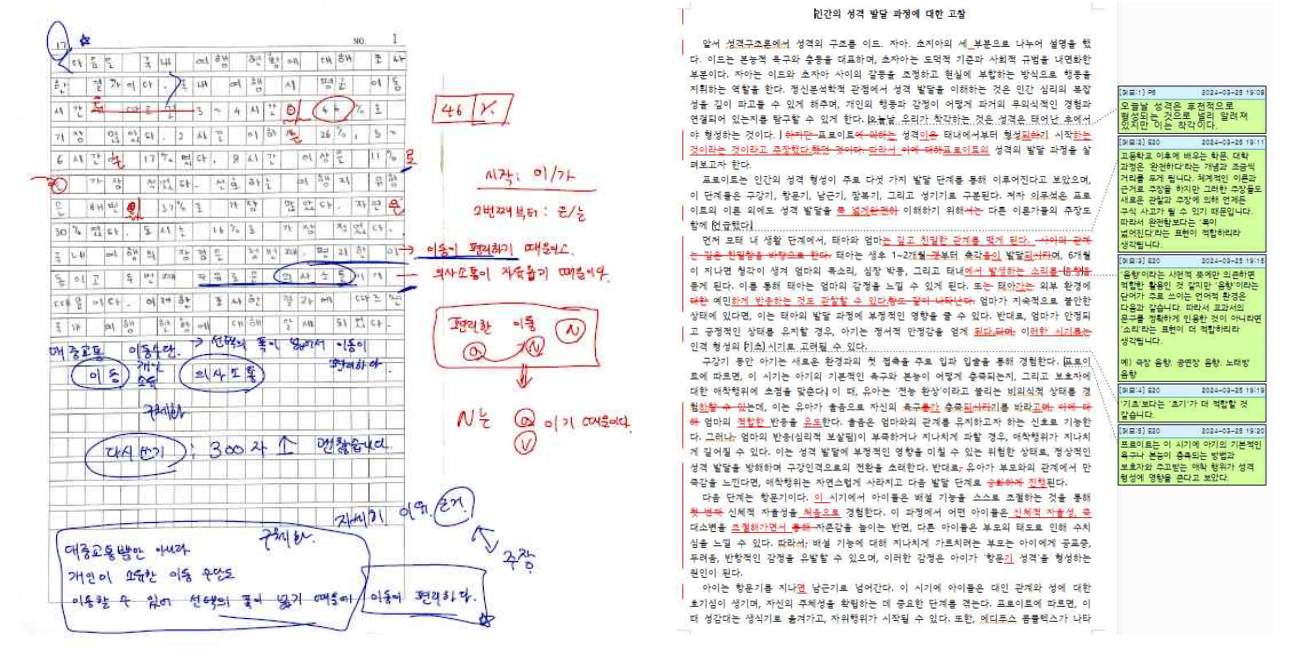 17 ☆
NO. 1
다음은 국내 여행 현황에 대해 조사
한 결과이다. 국내 여행 시 평균 이동
3~4시간이 46%로
가장 많았다. 2시간 이하는 26%, 5~
6시간은 17%였다. 9시간 이상은 11%로
가장 적었다. 선호하는 여행지 유형
은 해변이 37%로 가장 많았다. 자연은
30%였다. 도시는 16%로 가장 적었다.
국내 여행의 장점은 첫 번째, 편리한 이
동이고 두 번째 자유로운 의사소통이기
때문이다. 이러한 조사한 결과에 따르면
국내 여행 현황에 대해 알게 되었다.
46 %
시작: 이/가
2번째부터: 은/는
이동이 편리하기 때문이다.
의사소통이 자유롭기 때문이다.
편리한 이동 N
N는 이기 때문이다.
V
대중교통
선택의 폭이 넓어서 이동이
편리하다.
이동 의사소통
구체화
다시쓰기: 300자 ↑ 괜찮습니다.
자세히 이유. 근거
구체화.
주장
대중교통뿐만 아니라
개인이 소유한 이동 수단도
이동할 수 있어 선택의 폭이 넓기 때문에 이동이 편리하다.
인간의 성격 발달 과정에 대한 고찰
앞서 성격구조론에서 성격의 구조를 이드. 자아. 초자아의 세 부분으로 나누어 설명을 했
다. 이드는 본능적 욕구와 충동을 대표하며, 초자아는 도덕적 기준과 사회적 규범을 내면화한
부분이다. 자아는 이드와 초자아 사이의 갈등을 조정하고 현실에 부합하는 방식으로 행동을
지휘하는 역할을 한다. 정신분석학적 관점에서 성격 발달을 이해하는 것은 인간 심리의 복잡
성을 깊이 파고들 수 있게 해주며, 개인의 행동과 감정이 어떻게 과거의 무의식적인 경험과
연결되어 있는지를 탐구할 수 있게 한다. 오늘날 우리가 착각하는 것은 성격은 태어난 후에서
야 형성하는 것이다. 하지만 프로이트에 의하는 성격이은 태내에서부터 형성되하기 시작하는
것이라는 것이라고 주장했다.했던 것이다. 따라서 이에 대하프로이트의 성격의 발달 과정을 살
펴보고자 한다.
프로이트는 인간의 성격 형성이 주로 다섯 가지 발달 단계를 통해 이루어진다고 보았으며,
이 단계들은 구강기, 항문기, 남근기, 잠복기, 그리고 성기기로 구분된다. 저자 이무석은 프로
이트의 이론 외에도 성격 발달을 폭 넓게완전히 이해하기 위해서는 다른 이론가들의 주장도
함께 언급했다.
먼저 모태 내 생활 단계에서, 태아와 엄마는 깊고 친밀한 관계를 맺게 된다. 사이의 관계
는 깊은 친밀함을 바탕으로 한다. 태아는 생후 1~2개월 경부터 촉각을이 발달되시하며, 6개월
이 지나면 청각이 생겨 엄마의 목소리, 심장 박동, 그리고 태내에서 발생하는 소리를 음향을
듣게 된다. 이를 통해 태아는 엄마의 감정을 느낄 수 있게 된다. 또는 태아가는 외부 환경에
대한 예민하게 반응하는 것도 관찰할 수 있다.함도 같이 나타난다. 엄마가 지속적으로 불안한
상태에 있다면, 이는 태아의 발달 과정에 부정적인 영향을 줄 수 있다. 반대로, 엄마가 안정되
고 긍정적인 상태를 유지할 경우, 아기는 정서적 안정감을 얻게 된다.되며, 이러한 시기를는
인격 형성의 기초 시기로 고려될 수 있다.
구강기 동안 아기는 새로운 환경과의 첫 접촉을 주로 입과 입술을 통해 경험한다. 프로이
트에 따르면, 이 시기는 아기의 기본적인 욕구와 본능이 어떻게 충족되는지, 그리고 보호자에
대한 애착행위에 초점을 맞춘다. 이 때, 유아는 '전능 환상'이라고 불리는 비의식적 상태를 경
험하할 수 있는데, 이는 유아가 울음으로 자신의 욕구를가 충족되시키기를 바라고며, 이에 대
해 엄마의 적합한 반응을 유도한다. 울음은 엄마와의 관계를 유지하고자 하는 신호로 기능한
다. 그러나, 엄마의 반응(심리적 보살핌)이 부족하거나 지나치게 과할 경우, 애착행위가 지나치
게 길어질 수 있다. 이는 성격 발달에 부정적인 영향을 미칠 수 있는 위험한 상태로, 정상적인
성격 발달을 방해하며 구강인격으로의 전환을 초래한다. 반대로, 유아가 부모와의 관계에서 만
족감을 느낀다면, 애착행위는 자연스럽게 사라지고 다음 발달 단계로 승화하게 진행된다.
다음 단계는 항문기이다. 이 시기에서 아이들은 배설 기능을 스스로 조절하는 것을 통해
첫 번째 신체적 자율성을 처음으로 경험한다. 이 과정에서 어떤 아이들은 신체적 자율성, 즉
대소변을 조절해가면서 통해 자존감을 높이는 반면, 다른 아이들은 부모의 태도로 인해 수치
심을 느낄 수 있다. 따라서, 배설 기능에 대해 지나치게 가르치려는 부모는 아이에게 공포증,
두려움, 반항적인 감정을 유발할 수 있으며, 이러한 감정은 아이가 '항문기 성격'을 형성하는
원인이 된다.
아이는 항문기를 지나면 남근기로 넘어간다. 이 시기에 아이들은 대인 관계와 성에 대한
호기심이 생기며, 자신의 주체성을 확립하는 데 중요한 단계를 겪는다. 프로이트에 따르면, 이
때 성감대는 생식기로 옮겨가고, 자위행위가 시작될 수 있다. 또한, 에디푸스 콤플렉스가 나타
[메모:1] P6 2024-03-25 19:09
오늘날 성격은 후천적으로
형성되는 것으로 널리 알려져
있지만 이는 착각이다.
[메모:2] E20 2024-03-25 19:11
고등학교 이후에 배우는 학문, 대학
과정은 '완전하다'라는 개념과 조금씩
거리를 두게 됩니다. 체계적인 이론과
근거로 주장을 하지만 그러한 주장들도
새로운 관찰과 주장에 의해 언제든
구식 사고가 될 수 있기 때문입니다.
따라서 완전함보다는 '폭이
넓어진다'라는 표현이 적합하리라
생각됩니다.
[메모:3] E20 2024-03-25 19:15
'음향'이라는 사전적 뜻에만 의존하면
적합한 활용인 것 같지만 '음향'이라는
단어가 주로 쓰이는 언어적 환경은
다음과 같습니다. 따라서 교과서의
문구를 정확하게 인용한 것이 아니라면
'소리'라는 표현이 더 적합하리라
생각됩니다.
예) 극장 음향, 공연장 음향, 노래방
음향
[메모:4] E20 2024-03-25 19:19
'기초'보다는 '초기'가 더 적합할 것
같습니다.
[메모:5] E20 2024-03-25 19:20
프로이트는 이 시기에 아기의 기본적인
욕구나 본능이 충족되는 방법과
보호자와 주고받는 애착 행위가 성격
형성에 영향을 준다고 보았다.